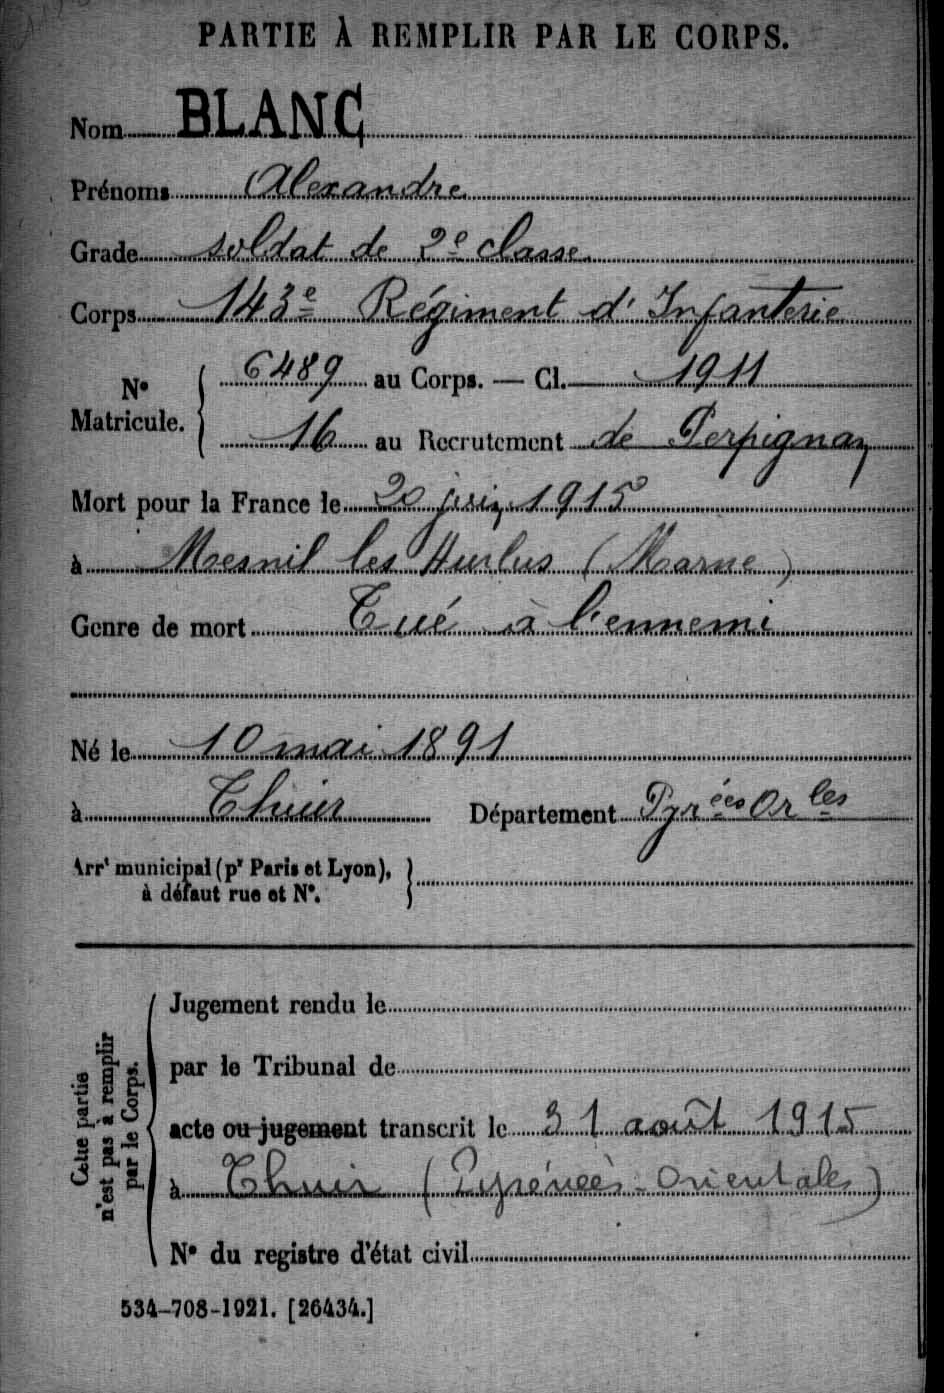 PARTIE À REMPLIR PAR LE CORPS.
Nom BLANC
Prénoms Alexandre
Grade soldat de 2e classe
Corps 143e Régiment d'Infanterie
N° Matricule. { 6489 au Corps. — Cl. 1911
16 au Recrutement de Perpignan
Mort pour la France le 20 juin 1915
à Mesnil les Hurlus (Marne)
Genre de mort Tué à l'ennemi
Né le 10 mai 1891
à Thuir Département Pyrées Orles
Arrt municipal (pr Paris et Lyon), à défaut rue et N°. }
Cette partie n'est pas à remplir par le Corps.
Jugement rendu le
par le Tribunal de
acte ou jugement transcrit le 31 août 1915
à Thuir (Pyrénées-Orientales)
N° du registre d'état civil
534-708-1921. [26434.]